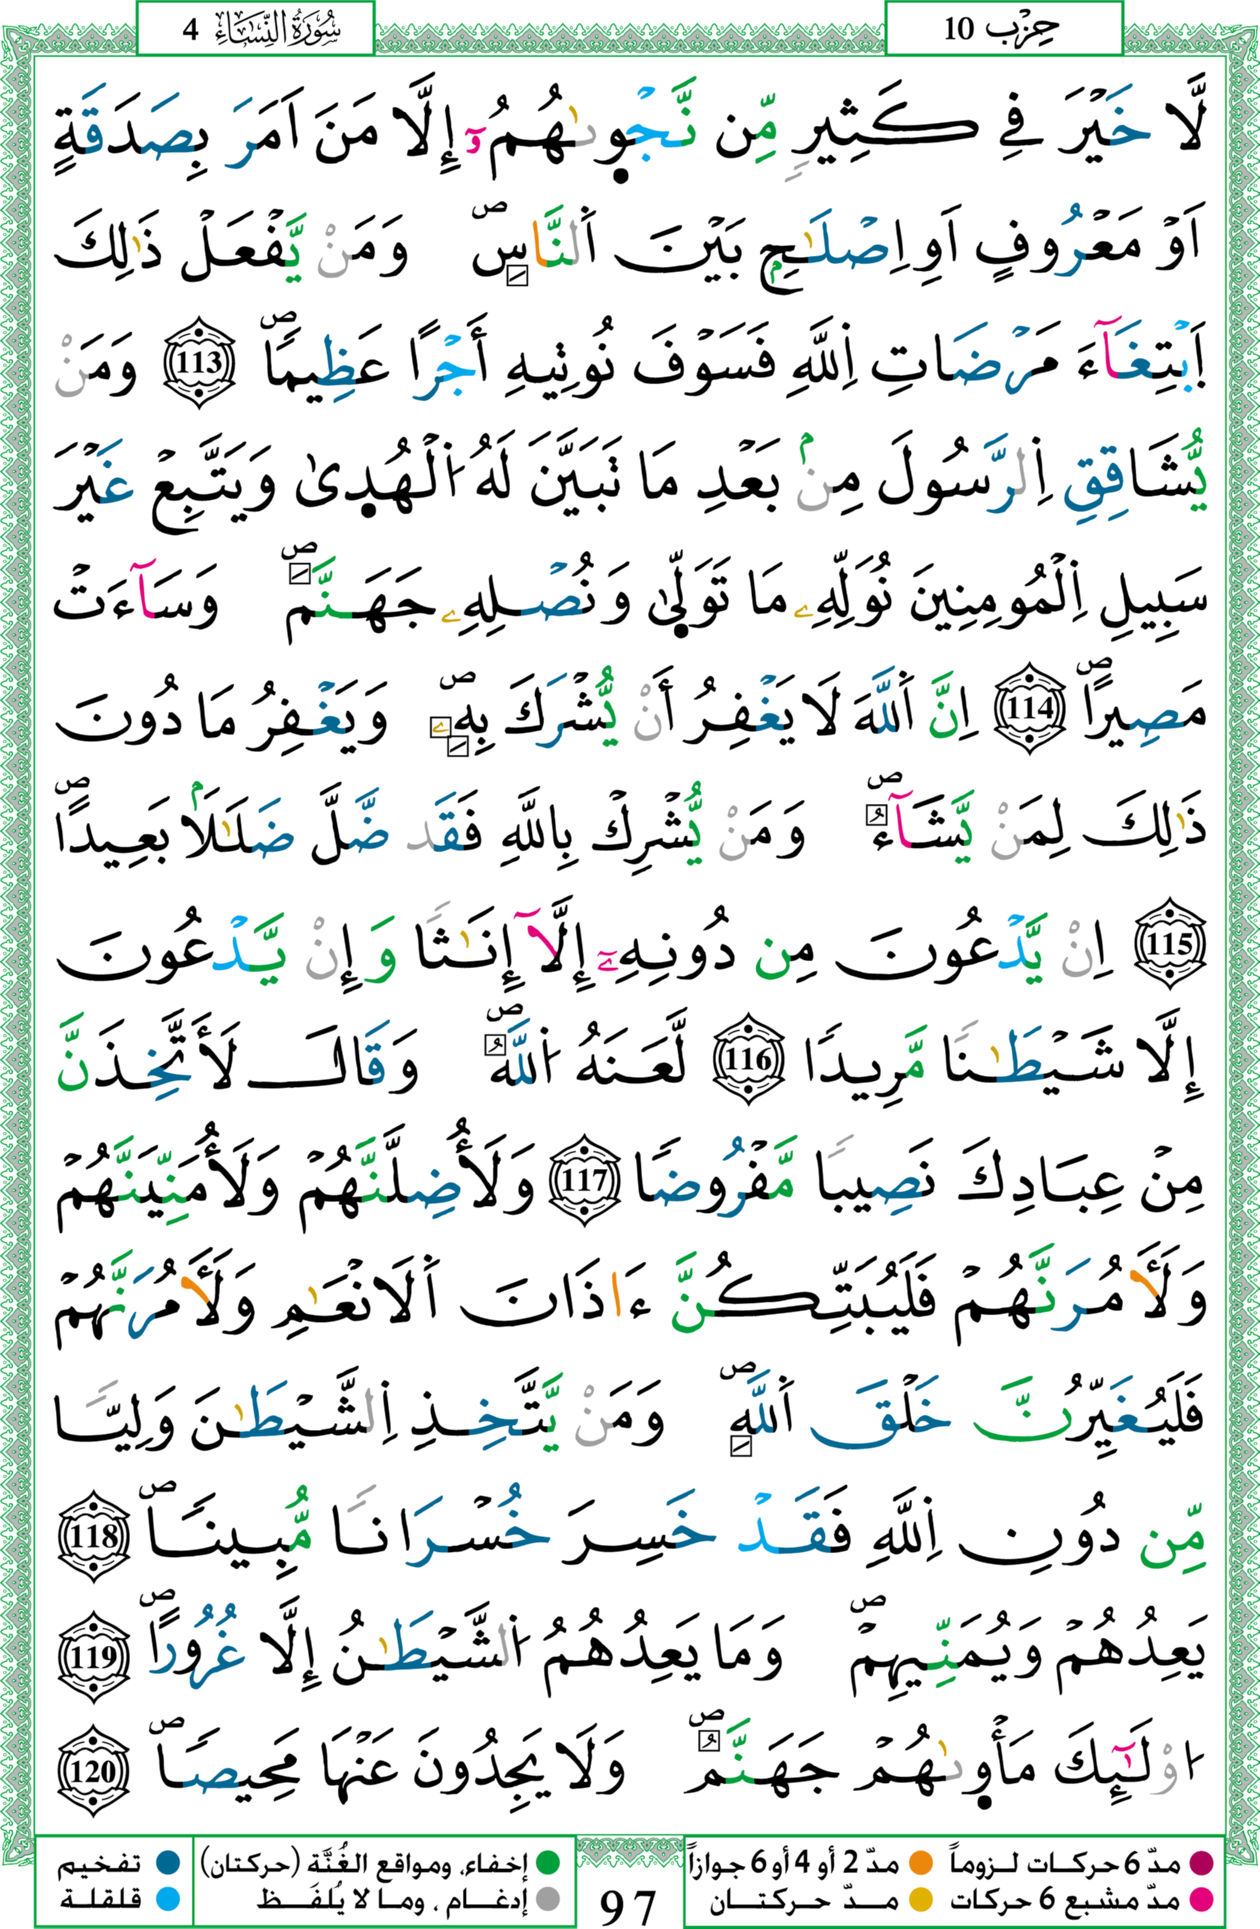 سُورَةُ النِّسَاءِ 4
حِزْب 10
لَّا خَيْرَ فِے كَثِيرٖ مِّن نَّجْوٜىٰهُمُۥٓ إِلَّا مَنَ اَمَرَ بِصَدَقَةٍ
اَوْ مَعْرُوفٍ اَوِ اِصْلَٰحِۢ بَيْنَ اَ۬لنَّاسِۖ وَمَنْ يَّفْعَلْ ذَٰلِكَ
اَ۪بْتِغَآءَ مَرْضَاتِ اِ۬للَّهِ فَسَوْفَ نُوتِيهِ أَجْرًا عَظِيمًاۖ 113 وَمَنْ
يُّشَاقِقِ اِ۬لرَّسُولَ مِنۢ بَعْدِ مَا تَبَيَّنَ لَهُ اُ۬لْهُدٜىٰ وَيَتَّبِعْ غَيْرَ
سَبِيلِ اِ۬لْمُومِنِينَ نُوَلِّهِۦ مَا تَوَلّٜىٰ وَنُصْلِهِۦ جَهَنَّمَۖ وَسَآءَتْ
مَصِيرًاۖ 114 اِنَّ اَ۬للَّهَ لَا يَغْفِرُ أَنْ يُّشْرَكَ بِهِۦۖ وَيَغْفِرُ مَا دُونَ
ذَٰلِكَ لِمَنْ يَّشَآءُۖ وَمَنْ يُّشْرِكْ بِاللَّهِ فَقَد ضَّلَّ ضَلَٰلَاۢ بَعِيدًاۖ
115 اِنْ يَّدْعُونَ مِن دُونِهِۦٓ إِلَّآ إِنَٰثًا وَإِنْ يَّدْعُونَ
إِلَّا شَيْطَٰنًا مَّرِيدًا 116 لَّعَنَهُ اُ۬للَّهُۖ وَقَالَ لَأَتَّخِذَنَّ
مِنْ عِبَادِكَ نَصِيبًا مَّفْرُوضًا 117 وَلَأُضِلَّنَّهُمْ وَلَأُمَنِّيَنَّهُمْ
وَلَأٓمُرَنَّهُمْ فَلَيُبَتِّكُنَّ ءَاذَانَ اَ۬لَانْعَٰمِ وَلَأٓمُرَنَّهُمْ
فَلَيُغَيِّرُنَّ خَلْقَ اَ۬للَّهِۖ وَمَنْ يَّتَّخِذِ اِ۬لشَّيْطَٰنَ وَلِيًّا
مِّن دُونِ اِ۬للَّهِ فَقَدْ خَسِرَ خُسْرَانًا مُّبِينًاۖ 118
يَعِدُهُمْ وَيُمَنِّيهِمْۖ وَمَا يَعِدُهُمُ اُ۬لشَّيْطَٰنُ إِلَّا غُرُورًاۖ 119
اُ۟وْلَٰٓئِكَ مَأْوٜىٰهُمْ جَهَنَّمُۖ وَلَا يَجِدُونَ عَنْهَا مَحِيصًاۖ 120
مدّ 6 حركات لـزوماً مدّ 2 أو 4 أو 6 جوازاً إخفاء، ومواقع الغُنَّة (حركتان) تفخيم
مدّ مشبع 6 حركات مـدّ حـركتـان إدغـام ، ومـا لا يُلفَـظ قلقلة
97